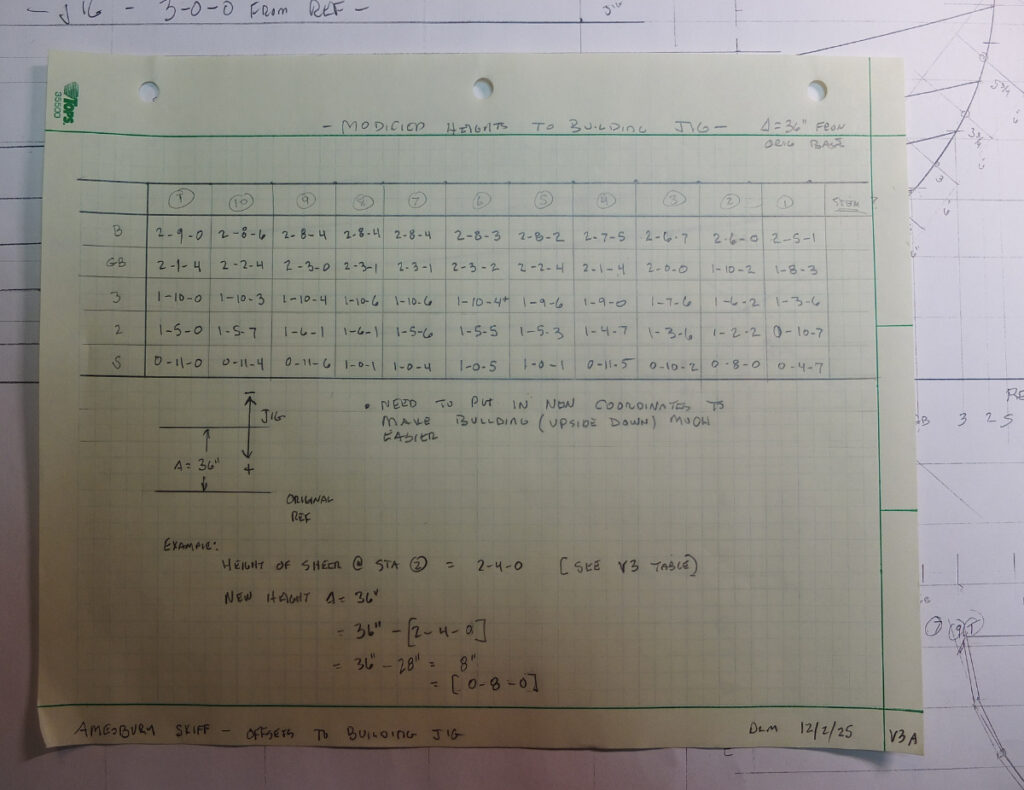 - JIG - 3-0-0 FROM REF -
JIG
TOPS.
35500
- MODIFIED HEIGHTS TO BUILDING JIG - Δ=36" FROM
ORIG BASE
T 10 9 8 7 6 5 4 3 2 1 STEM ?
B 2-9-0 2-8-6 2-8-4 2-8-4 2-8-4 2-8-3 2-8-2 2-7-5 2-6-7 2-6-0 2-5-1
GB 2-1-4 2-2-4 2-3-0 2-3-1 2-3-1 2-3-2 2-2-4 2-1-4 2-0-0 1-10-2 1-8-3
3 1-10-0 1-10-3 1-10-4 1-10-6 1-10-6 1-10-4+ 1-9-6 1-9-0 1-7-6 1-6-2 1-3-6
2 1-5-0 1-5-7 1-6-1 1-6-1 1-5-6 1-5-5 1-5-3 1-4-7 1-3-6 1-2-2 0-10-7
S 0-11-0 0-11-4 0-11-6 1-0-1 1-0-4 1-0-5 1-0-1 0-11-5 0-10-2 0-8-0 0-4-7
- JIG +
Δ= 36"
ORIGINAL
REF
• NEED TO PUT IN NEW COORDINATES TO
MAKE BUILDING (UPSIDE DOWN) MUCH
EASIER
EXAMPLE:
HEIGHT OF SHEER @ STA 2 = 2-4-0 [SEE V3 TABLE]
NEW HEIGHT Δ= 36"
= 36" - [2-4-0]
= 36" - 28" = 8"
= [0-8-0]
AMESBURY SKIFF - OFFSETS TO BUILDING JIG DLM 12/2/25 V3A
5 3/4
3 3/4
RE
B 3 2 S
7 9 T